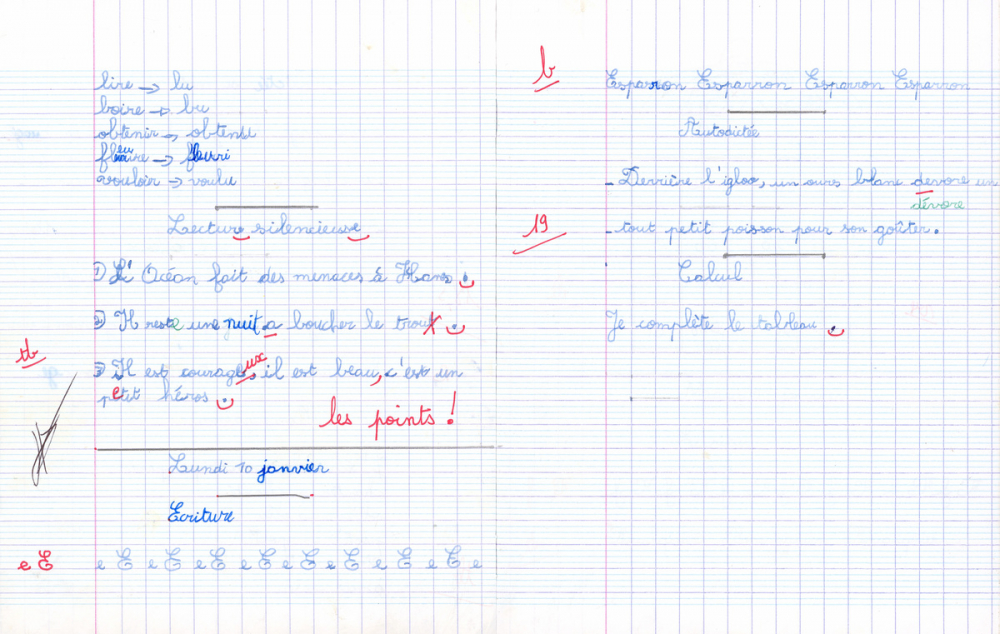 lire → lu
boire → bu
obtenir → obtenu
fleurire → fleuri
vouloir → voulu
Lecture silencieuse
1) L'Océan fait des menaces à Hans.
2) Il reste une nuit a boucher le trou.
tb
3) Il est courageux, il est beau, c'est un
petit héros.
les points !
Lundi 10 janvier
Ecriture
e E
e E e E e E e E e E e E e E e E e
b
Esparron Esparron Esparron Esparron
Autodictée
- Derrière l'igloo, un ours blanc devore un
dévore
19
- tout petit poisson pour son goûter.
Calcul
Je complète le tableau.